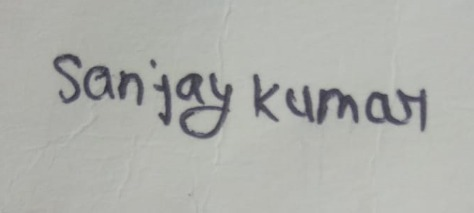 Sanjay kumar